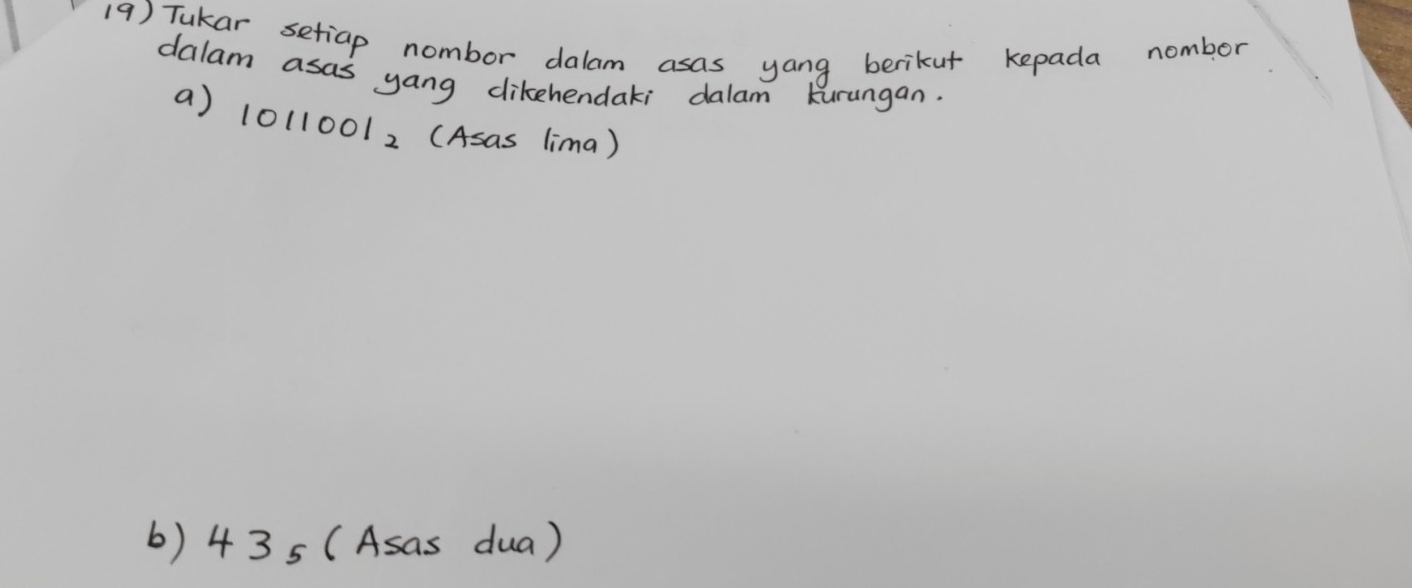 19) Tukar setiap nombor dalam asas yang berikut kepada nombor
dalam asas yang dikehendaki dalam kurungan.
a) 1011001₂ (Asas lima)
b) 43₅ (Asas dua)